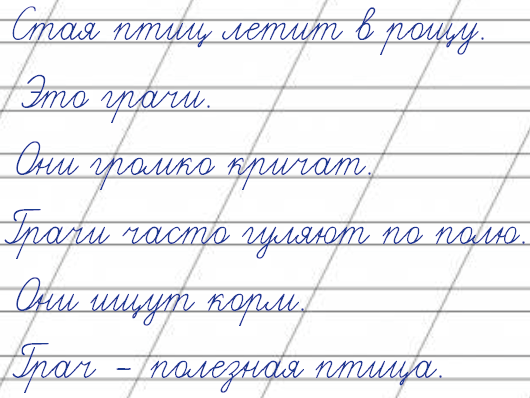 Стая птиц летит в рощу.
Это грачи.
Они громко кричат.
Грачи часто гуляют по полю.
Они ищут корм.
Грач - полезная птица.